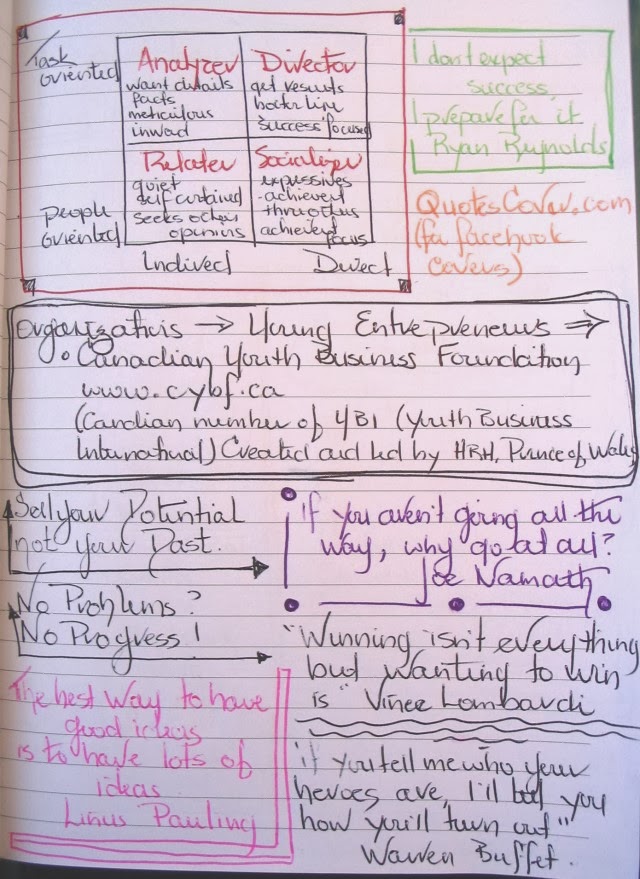 Task
Oriented
Analyzer
want details
facts
meticulous
inward
Director
get results
bottom line
success focused
People
Oriented
Relater
quiet
self contained
seeks other
opinions
Socializer
expressives
achievement
thru others
achievement
focus
Indirect
Direct
I dont expect
success,
I prepare for it
Ryan Reynolds
QuotesCover.com
(for facebook
covers)
Organizations → Young Entrepreneurs ⇒
• Canadian Youth Business Foundation
www.cybf.ca
(Candian number of YBI (Youth Business
International) Created and led by HRH, Prince of Wales
Sell your Potential
not your Past.
No Problems?
No Progress!
The best way to have
good ideas
is to have lots of
ideas
Linus Pauling
If you aren't going all the
way, why go at all?
Joe Namath
"Winning isn't everything
but wanting to win
is" Vince Lombardi
"if you tell me who your
heroes are, I'll tell you
how you'll turn out"
Warren Buffet.